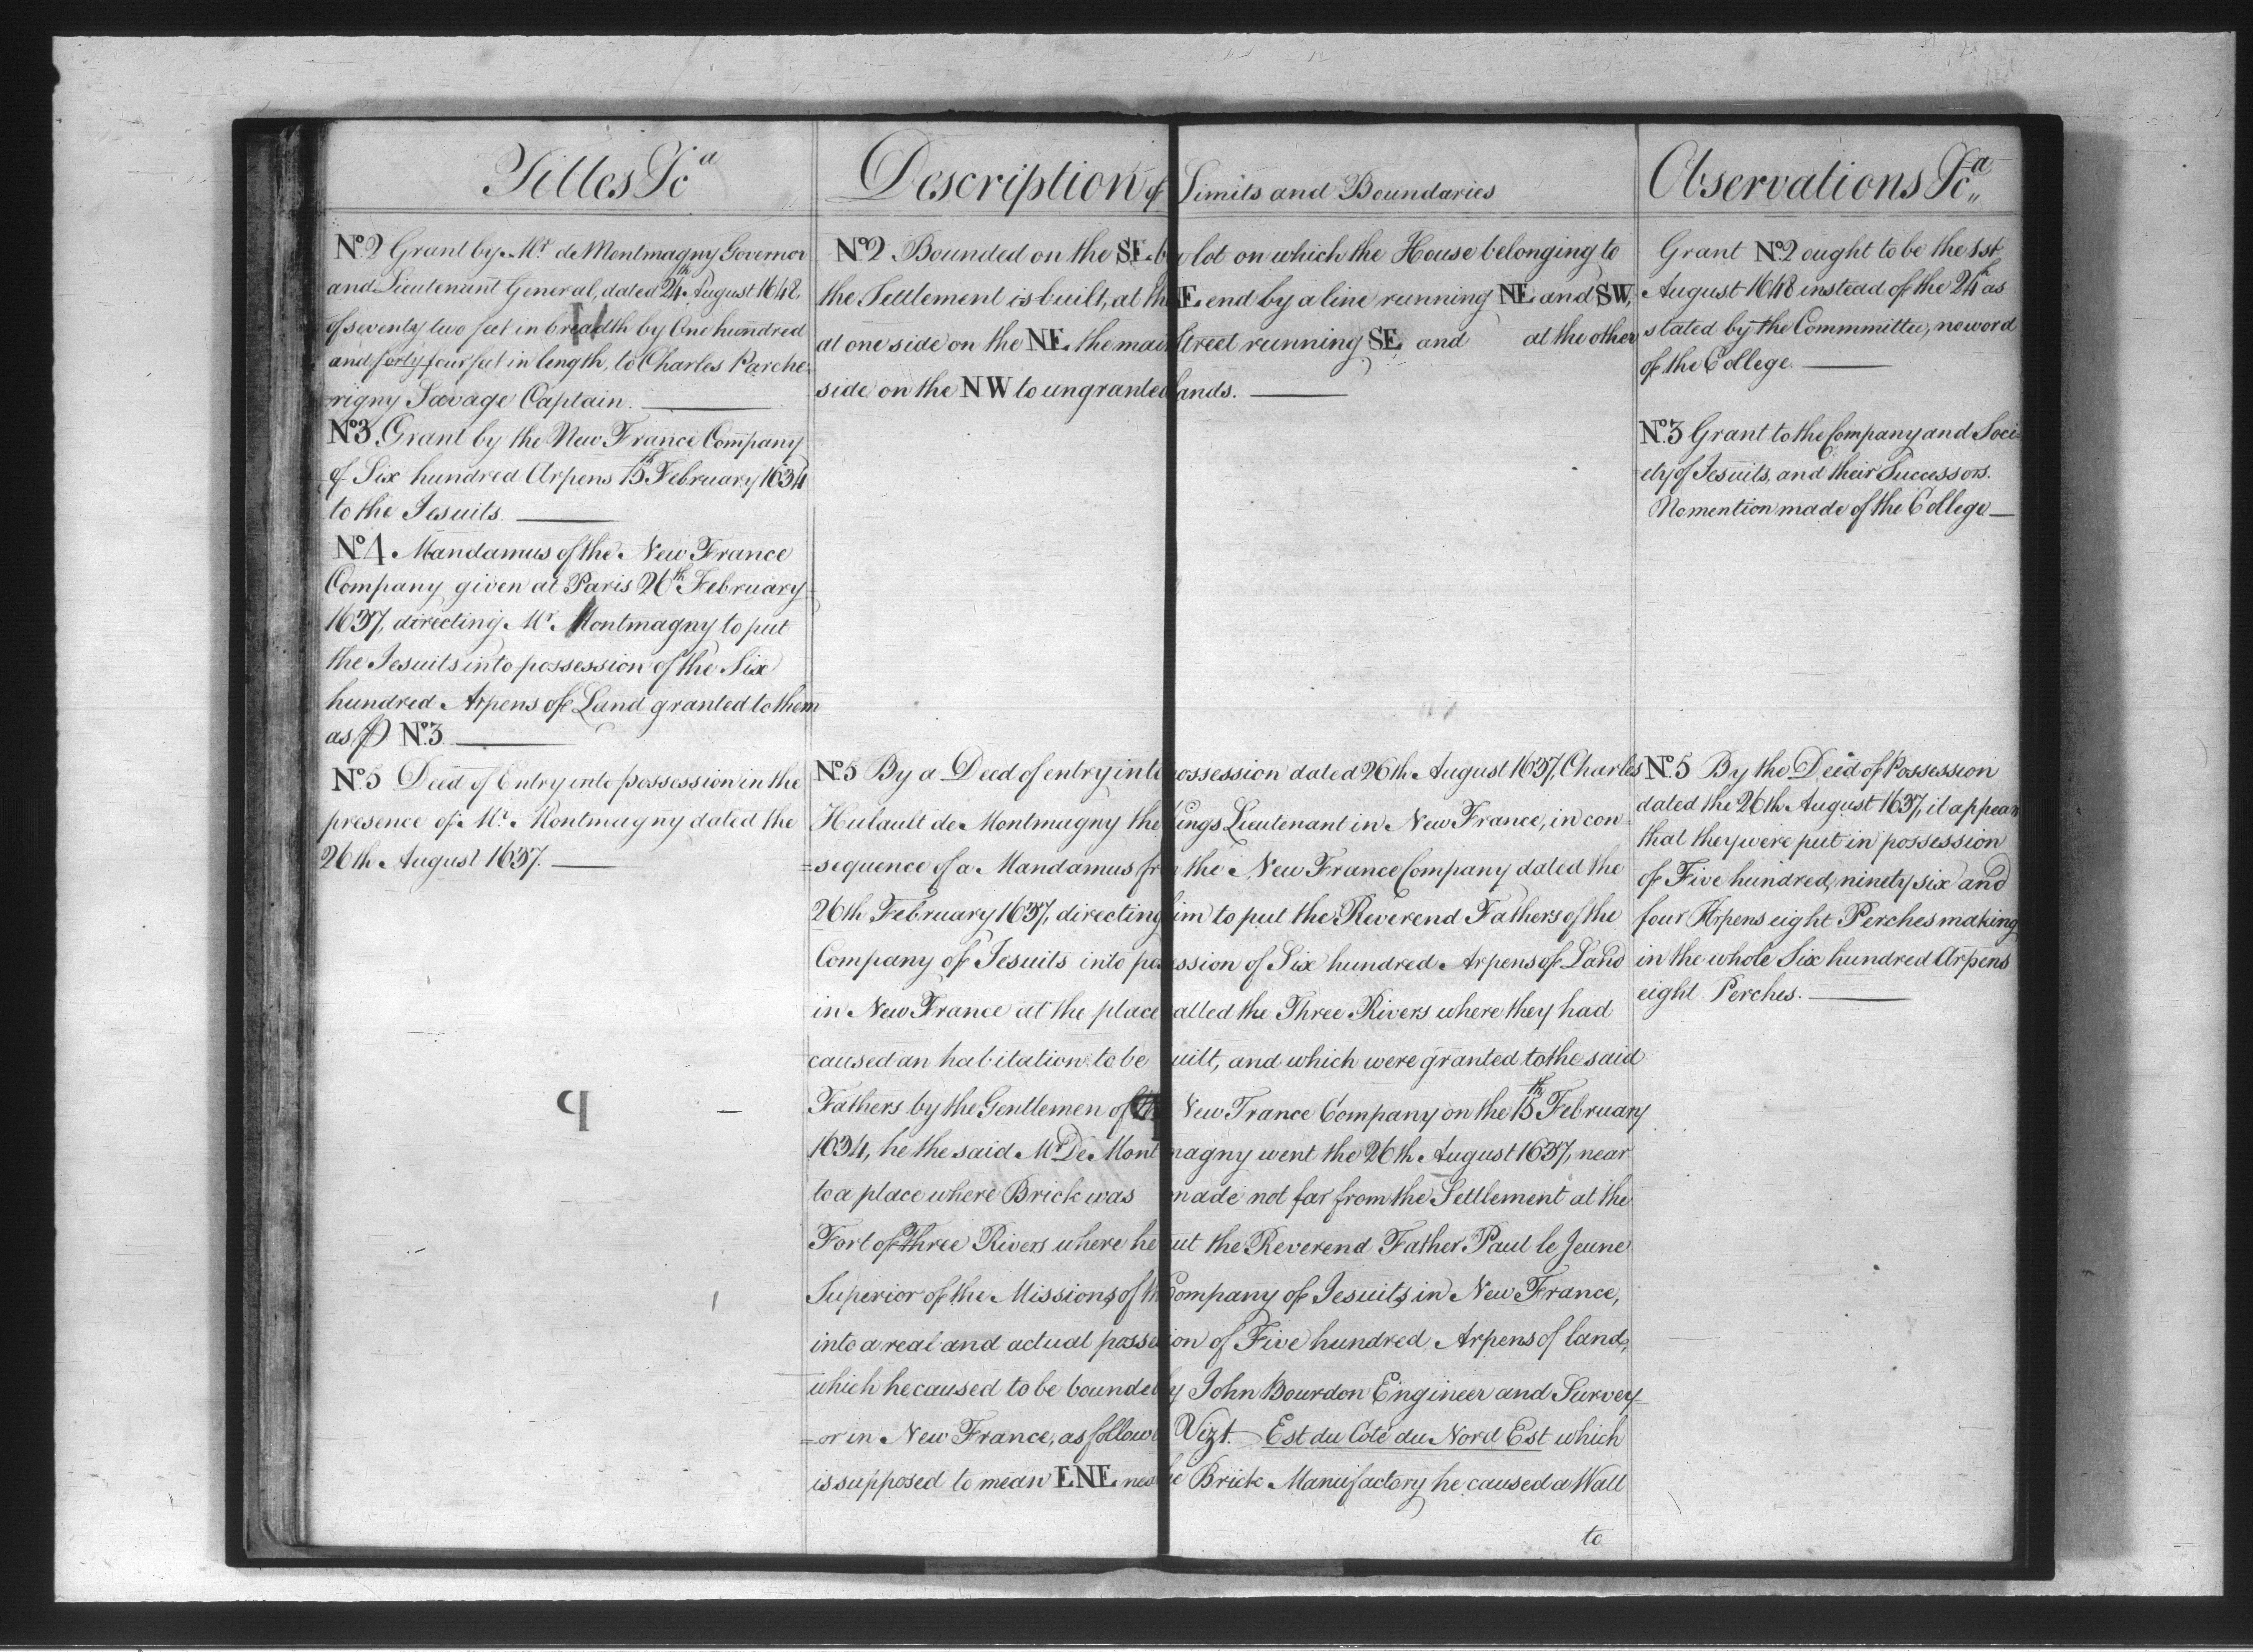 Titles &cª
N.º 2 Grant by Mr. de Montmagny Governor
and Lieutenant General, dated 24th August 1648,
of seventy two feet in breadth by One hundred
and forty four feet in length, to Charles Parche-
rigny Savage Captain.
N.º 3. Grant by the New France Company
of Six hundred Arpens 15th February 1634
to the Jesuits
N.º 4. Mandamus of the New France
Company given at Paris 26th February
1637, directing Mr. Montmagny to put
the Jesuits into possession of the Six
hundred Arpens of Land granted to them
as P N.º 3.
N.º 5 Deed of Entry into possession in the
presence of Mr. Montmagny dated the
26th August 1637.
Description of Limits and Boundaries
N.º 2 Bounded on the SE. by lot on which the House belonging to
the Settlement is built, at th E. end by a line running NE and SW,
at one side on the NE. the main Street running SE and at the other
side on the NW to ungranted lands.
N.º 5 By a Deed of entry into ossession dated 26th August 1637, Charles
Hulault de Montmagny the Kings Lieutenant in New France, in con=
=sequence of a Mandamus fr m the New France Company dated the
26th February 1637, directing im to put the Reverend Fathers of the
Company of Jesuits into po ession of Six hundred Arpens of Land
in New France at the place alled the Three Rivers where they had
caused an habitation to be uilt, and which were granted to the said
Fathers by the Gentlemen of the New France Company on the 15th February
1634, he the said Mr. De Mont magny went the 26th August 1637, near
to a place where Brick was made not far from the Settlement at the
Fort of Three Rivers where he ut the Reverend Father Paul le Jeune
Superior of the Missions of th Company of Jesuits in New France,
into a real and actual posse ion of Five hundred Arpens of land,
which he caused to be bounde by John Bourdon Engineer and Survey=
=or in New France, as follow Vizt. Est du Coté du Nord Est which
is supposed to mean ENE. nea he Brick Manufactory he caused a Wall
to
Observations &cª
Grant N.º 2 ought to be the 1st.
August 1648 instead of the 24th as
stated by the Commmittee, no word
of the College.
N.º 3 Grant to the Company and Soci=
=ety of Jesuits, and their Successors.
No mention made of the College
N.º 5 By the Deed of Possession
dated the 26th August 1637, it appears
that they were put in possession
of Five hundred, ninety six and
four Arpens eight Perches making
in the whole Six hundred Arpens
eight Perches.